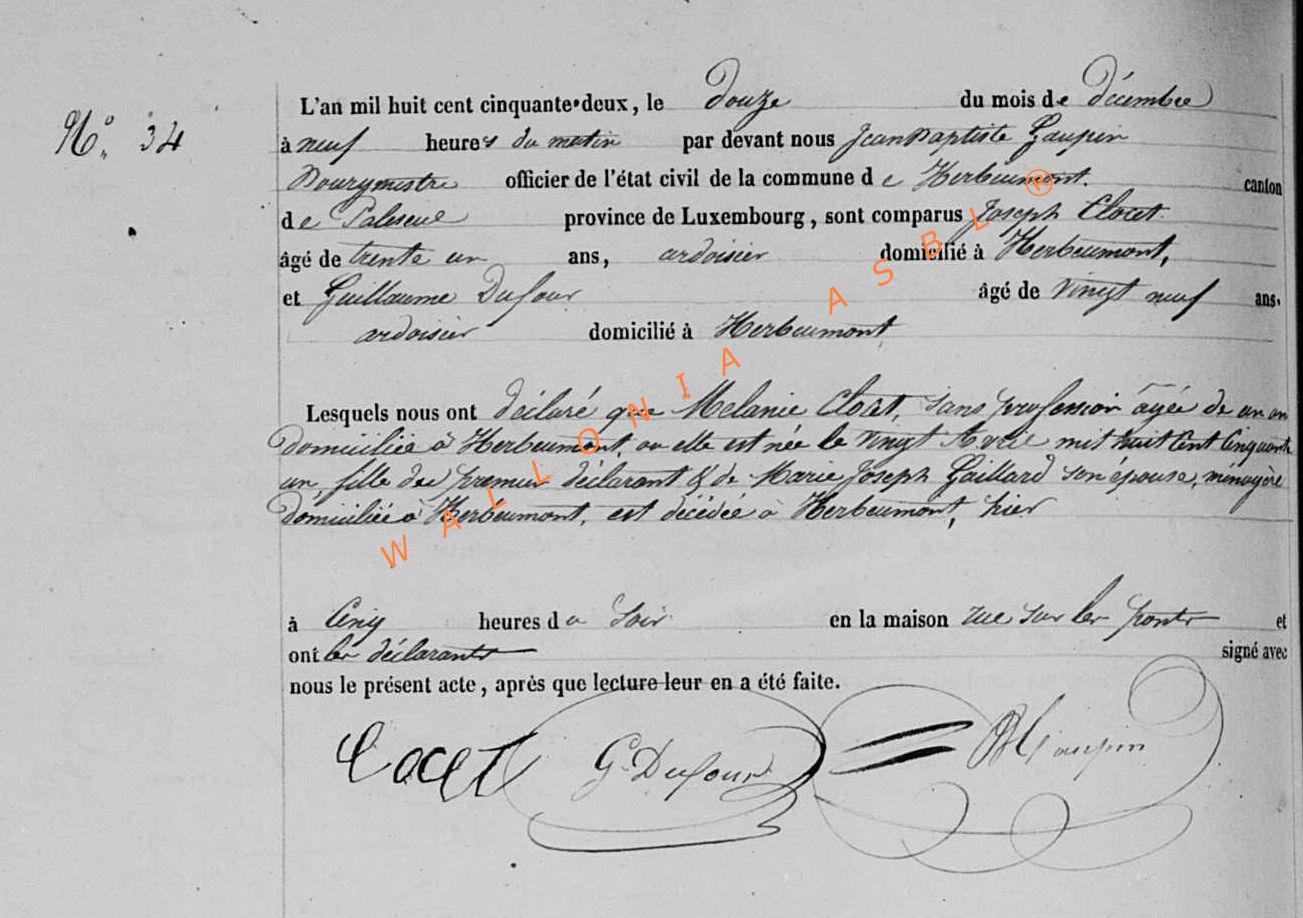 L'an mil huit cent cinquante-deux, le douze du mois de décembre
N° 34
à neuf heures du matin par devant nous Jean Baptiste Gaupin
Bourgmestre officier de l'état civil de la commune de Herbeumont. canton
de Paliseul province de Luxembourg, sont comparus Joseph Closet
âgé de trente un ans, ardoisier domicilié à Herbeumont,
et Guillaume Dufour âgé de vingt neuf ans.
ardoisier domicilié à Herbeumont
Lesquels nous ont déclaré que Melanie Closet, sans profession âgée de un an
domiciliée à Herbeumont, ou elle est née le vingt Avril mil huit Cent Cinquante
un, fille du premier déclarant & de Marie Joseph Gaillard son épouse, ménagère
domiciliée à Herbeumont, est décédée à Herbeumont, hier
à Cinq heures du soir en la maison rue sur les ponts et
ont les déclarants signé avec
nous le présent acte, après que lecture leur en a été faite.
G. Dufour
WALLONIA ASBL ®